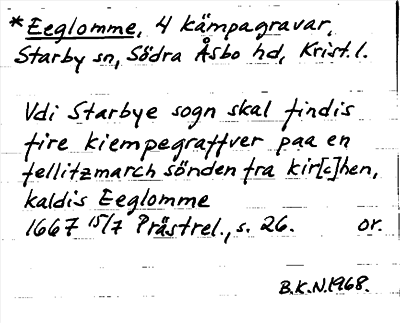 *Eeglomme, 4 kämpagravar,
Starby sn, Södra Åsbo hd, Krist. l.
Vdi Starbye sogn skal findis
fire kiempegraffver paa en
fellitzmarch sönden fra kir[c]hen,
kaldis Eeglomme
1667 15/7 Prästrel., s. 26. or.
B.K.N. 1968.